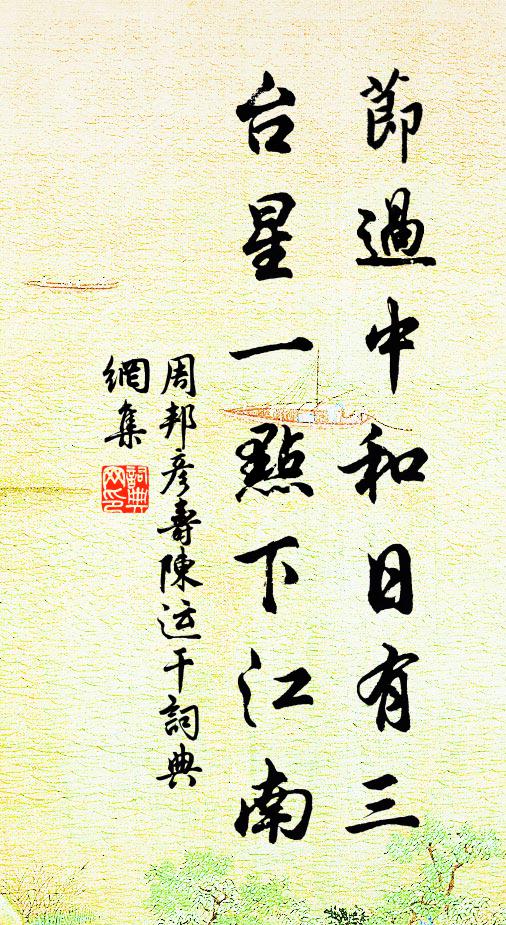 節過中和日有三
台星一點下江南
周邦彥壽陳运干詞典
網集
詞典
网印